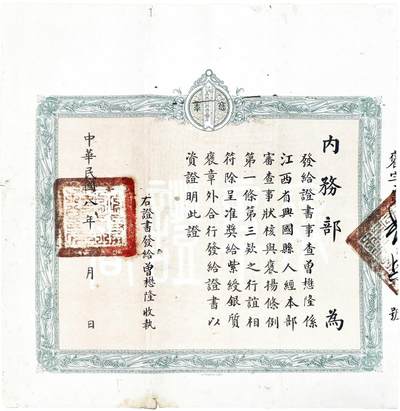 內務部 為
發給證書事查曾懋隆係
江西省興國縣人經本部
審查事狀核與褒揚條例
第一條第三款之行誼相
符除呈准獎給紫綬銀質
褒章外合行發給證書以
資證明此證
右證書發給曾懋隆收執
中華民國八年 月 日